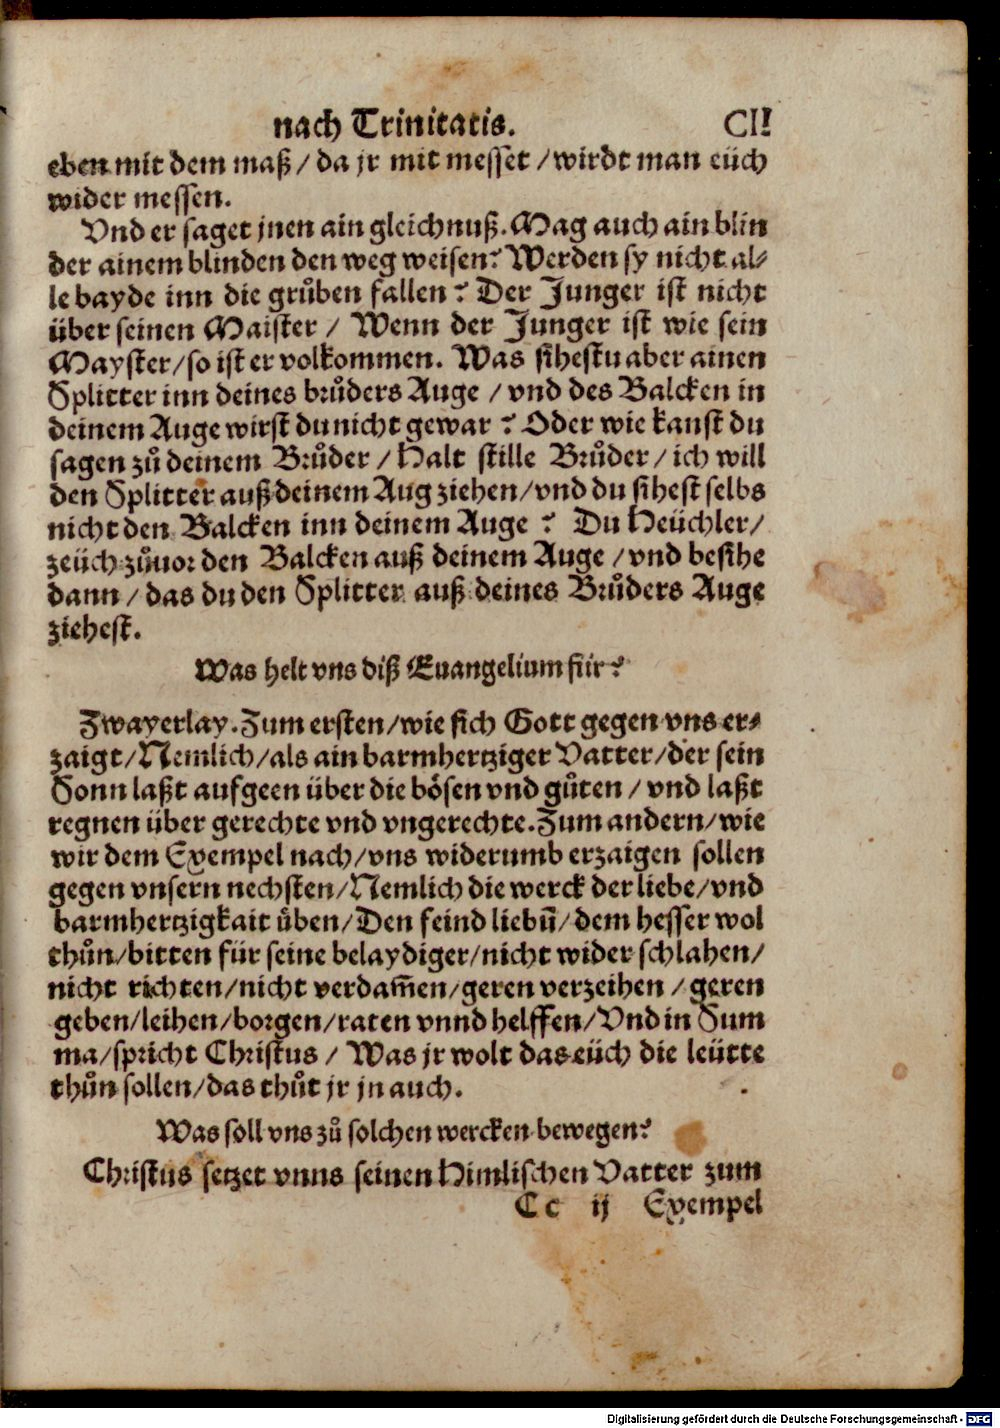 nach Trinitatis. CII
eben mit dem maß / da jr mit messet / wirdt man eüch
wider messen.
Vnd er saget jnen ain gleichnuß. Mag auch ain blin
der ainem blinden den weg weisen? Werden sy nicht al⸗
le bayde inn die grůben fallen? Der Junger ist nicht
über seinen Maister / Wenn der Junger ist wie sein
Mayster / so ist er volkommen. Was sihestu aber ainen
Splitter inn deines brůders Auge / vnd des Balcken in
deinem Auge wirst du nicht gewar? Oder wie kanst du
sagen zů deinem Brůder / Halt stille Brůder / ich will
den Splitter auß deinem Aug ziehen / vnd du sihest selbs
nicht den Balcken inn deinem Auge? Du Heüchler /
zeüch zůuor den Balcken auß deinem Auge / vnd besihe
dann / das du den Splitter auß deines Brůders Auge
ziehest.
Was helt vns diß Euangelium für?
Zwayerlay. Zum ersten / wie sich Gott gegen vns er⸗
zaigt / Nemlich / als ain barmhertziger Vatter / der sein
Sonn laßt aufgeen über die bösen vnd gůten / vnd laßt
regnen über gerechte vnd vngerechte. Zum andern / wie
wir dem Exempel nach / vns widerumb erzaigen sollen
gegen vnsern nechsten / Nemlich die werck der liebe / vnd
barmhertzigkait üben / Den feind liebñ / dem hesser wol
thůn / bitten für seine belaydiger / nicht wider schlahen /
nicht richten / nicht verdam̃en / geren verzeihen / geren
geben / leihen / borgen / raten vnnd helffen / Vnd in Sum
ma / spricht Christus / Was jr wolt das eüch die leütte
thůn sollen / das thůt jr jn auch.
Was soll vns zů solchen wercken bewegen?
Christus setzet vnns seinen Himlischen Vatter zum
Cc ij Exempel
Digitalisierung gefördert durch die Deutsche Forschungsgemeinschaft - DFG